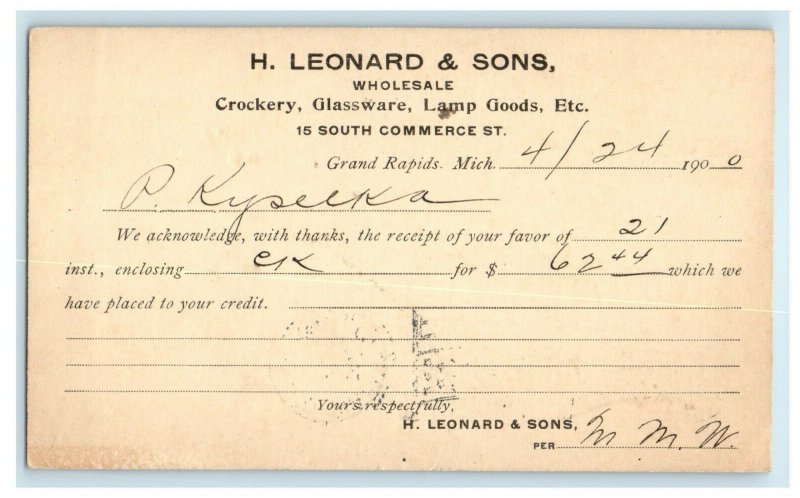 H. LEONARD & SONS,
WHOLESALE
Crockery, Glassware, Lamp Goods, Etc.
15 SOUTH COMMERCE ST.
Grand Rapids. Mich. 4/24 1900
P. Kyselka
We acknowledge, with thanks, the receipt of your favor of 21
inst., enclosing ck for $ 62 44 which we
have placed to your credit.
Yours respectfully,
H. LEONARD & SONS,
PER M. M. W.